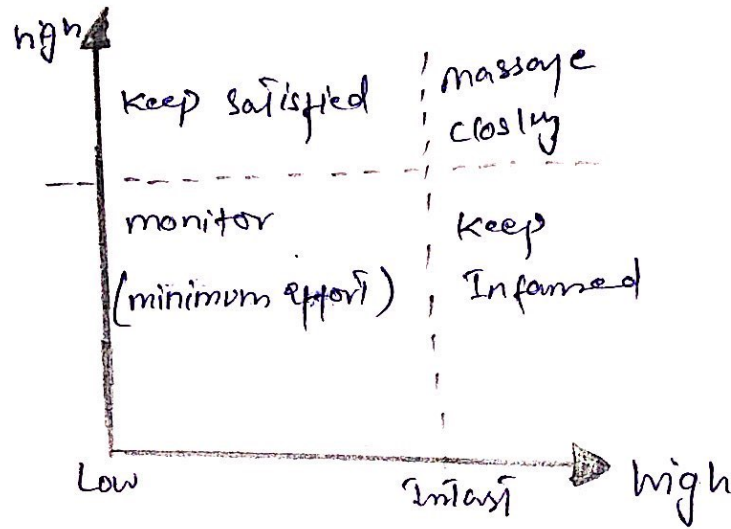 high
Keep satisfied
massage
closly
monitor
(minimum effort)
Keep
Infamed
Low
Intast
high